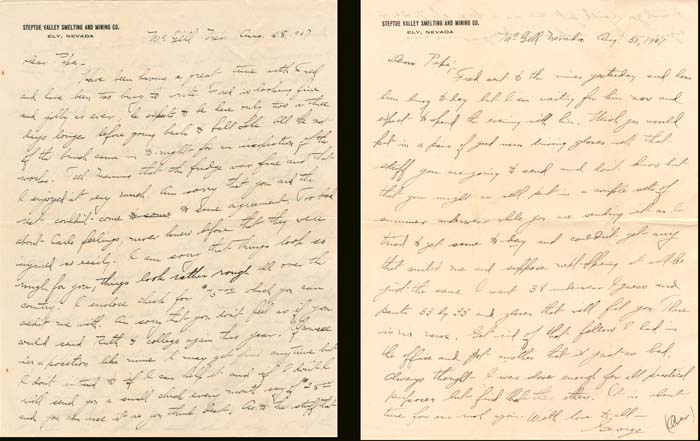 STEPTOE VALLEY SMELTING AND MINING CO.
ELY, NEVADA
McGill Nev Aug. 28, 1907
Dear Papa,-
Have been having a great time with Fred
and have been too busy to write. Fred is looking fine
and jolly as ever. He expects to be here only two or three
days longer before going back to Salt Lake. All the rest
of the bunch came in to-night for an inspection of the
works. Tell Mamma that the fudge was fine and that
I enjoyed it very much. Am sorry that you and the
couldn't come to some agreement. Too bad
about Carls feelings, never knew before that they were
injured so easily. I am sorry that things look so
rough for you, things look rather rough all over the
country. I enclose check for $5 which you can
credit me with. Am sorry that you don't feel as if you
could send Ruth to college again this year. If
in a position like mine I may get fired anytime but
I don't intend to if I can help it and if I don't I
will send you a small check every month say
and you can use it as you think best. As to the stuff that
STEPTOE VALLEY SMELTING AND MINING CO.
ELY, NEVADA
McGill Nevada Aug. 30, 1907
Dear Papa:
Fred went to the mines yesterday and has
been busy to-day but I am waiting for him now and
expect to spend the evening with him. Wish you would
put in a pair of good driving gloves with that
stuff you are going to send and don't know but
that you might as well put in a couple sets of
summer underwear while you are sending it as I
tried to get some to-day and couldn't get any
that suited me and suppose next Spring it will be
just the same. I want 38 underwear I guess and
pants 33 by 33 and gloves that will fit you. There
is no news. Got rid of that fellow I had in
the office and got another that is just as bad.
Always thought I was slow enough for all practical
purposes but find that other. It is about
time for me again. With love to all-
George
(Over)